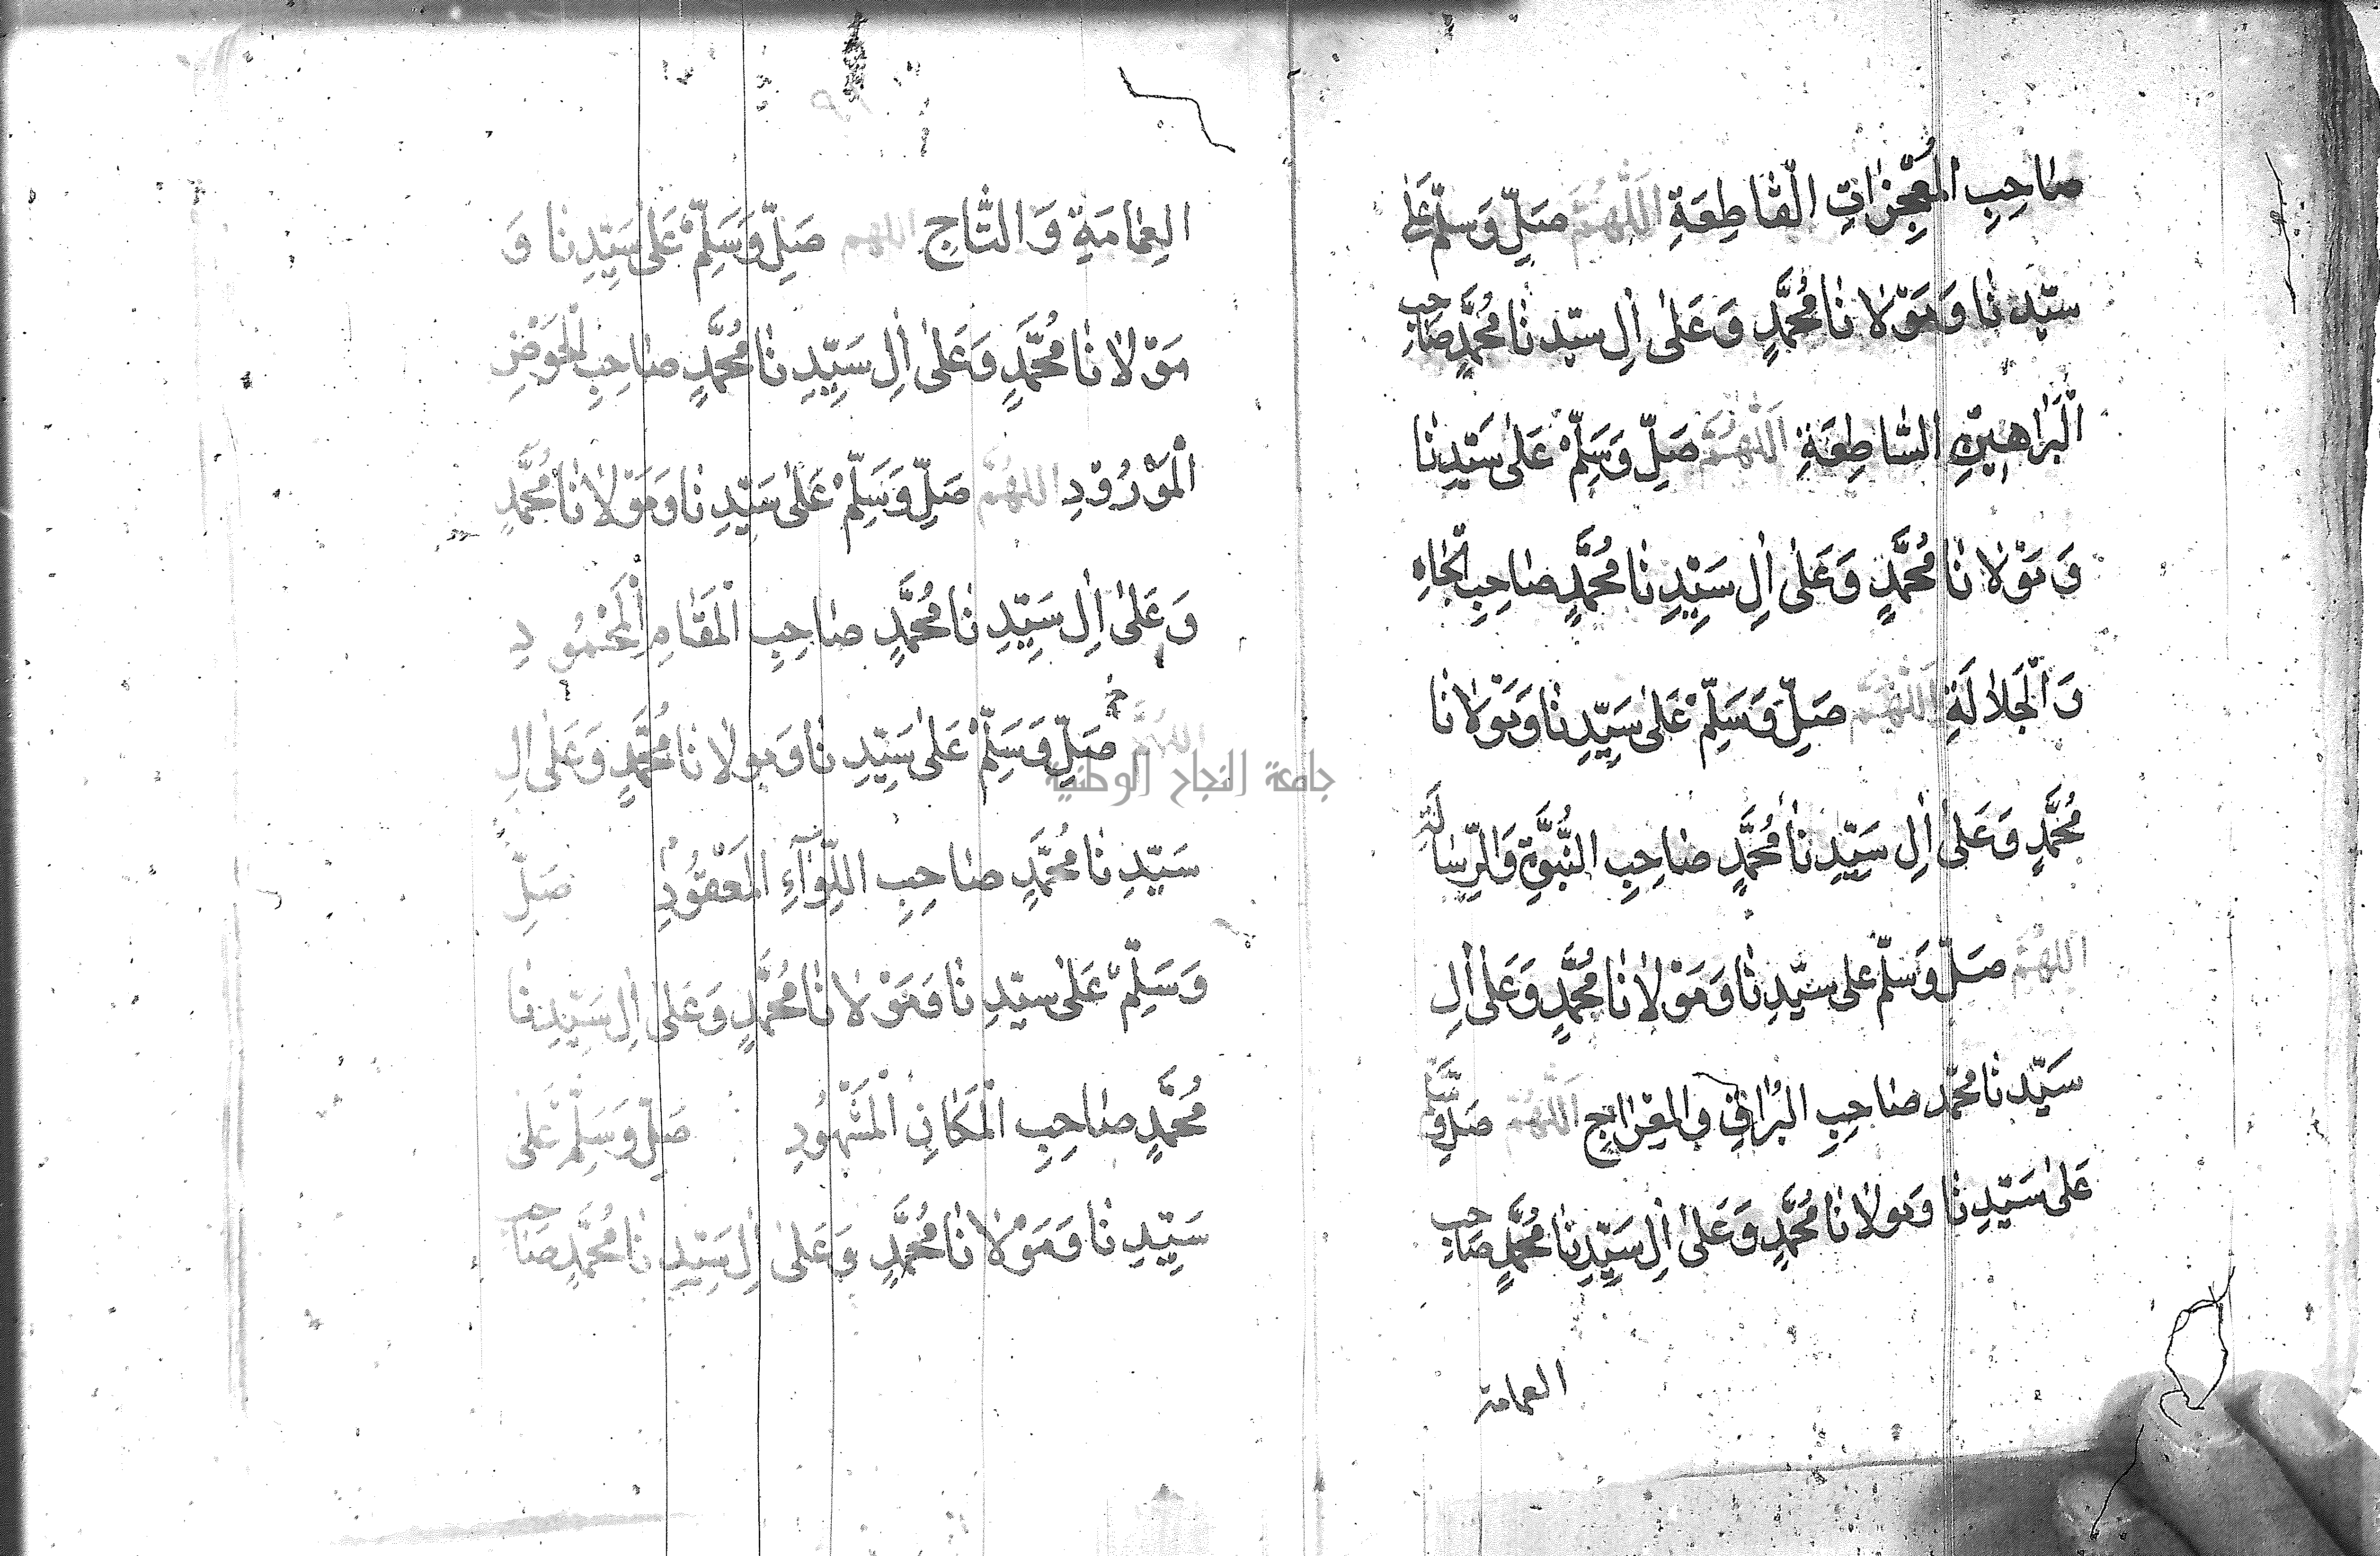 صَاحِبِ الْمُعْجِزَاتِ الْقَاطِعَةِ اَللّٰهُمَّ صَلِّ وَسَلِّمْ عَلٰى
سَيِّدِنَا وَمَوْلَانَا مُحَمَّدٍ وَعَلٰى اٰلِ سَيِّدِنَا مُحَمَّدٍ صَاحِبِ
الْبَرَاهِينِ السَّاطِعَةِ اَللّٰهُمَّ صَلِّ وَسَلِّمْ عَلٰى سَيِّدِنَا
وَمَوْلَانَا مُحَمَّدٍ وَعَلٰى اٰلِ سَيِّدِنَا مُحَمَّدٍ صَاحِبِ الْجَاهِ
وَالْجَلَالَةِ اَللّٰهُمَّ صَلِّ وَسَلِّمْ عَلٰى سَيِّدِنَا وَمَوْلَانَا
مُحَمَّدٍ وَعَلٰى اٰلِ سَيِّدِنَا مُحَمَّدٍ صَاحِبِ النُّبُوَّةِ وَالرِّسَالَةِ
اللهُمَّ صَلِّ وَسَلِّمْ عَلٰى سَيِّدِنَا وَمَوْلَانَا مُحَمَّدٍ وَعَلٰى اٰلِ
سَيِّدِنَا مُحَمَّدٍ صَاحِبِ الْبُرَاقِ وَالْمِعْرَاجِ اَللّٰهُمَّ صَلِّ وَسَلِّمْ
عَلٰى سَيِّدِنَا وَمَوْلَانَا مُحَمَّدٍ وَعَلٰى اٰلِ سَيِّدِنَا مُحَمَّدٍ صَاحِبِ
العمامة
الْعِمَامَةِ وَالتَّاجِ اللهم صَلِّ وَسَلِّمْ عَلٰى سَيِّدِنَا وَ
مَوْلَانَا مُحَمَّدٍ وَعَلٰى اٰلِ سَيِّدِنَا مُحَمَّدٍ صَاحِبِ الْحَوْضِ
الْمَوْرُوْدِ اللهُمَّ صَلِّ وَسَلِّمْ عَلٰى سَيِّدِنَا وَمَوْلَانَا مُحَمَّدٍ
وَعَلٰى اٰلِ سَيِّدِنَا مُحَمَّدٍ صَاحِبِ الْمَقَامِ الْمَحْمُودِ
اللهُمَّ صَلِّ وَسَلِّمْ عَلٰى سَيِّدِنَا وَمَوْلَانَا مُحَمَّدٍ وَعَلٰى اٰلِ
سَيِّدِنَا مُحَمَّدٍ صَاحِبِ اللِّوَآءِ الْمَعْقُودِ صَلِّ
وَسَلِّمْ عَلٰى سَيِّدِنَا وَمَوْلَانَا مُحَمَّدٍ وَعَلٰى اٰلِ سَيِّدِنَا
مُحَمَّدٍ صَاحِبِ الْمَكَانِ الْمَشْهُودِ صَلِّ وَسَلِّمْ عَلٰى
سَيِّدِنَا وَمَوْلَانَا مُحَمَّدٍ وَعَلٰى اٰلِ سَيِّدِنَا مُحَمَّدٍ صَاحِبِ
جامعة النجاح الوطنية